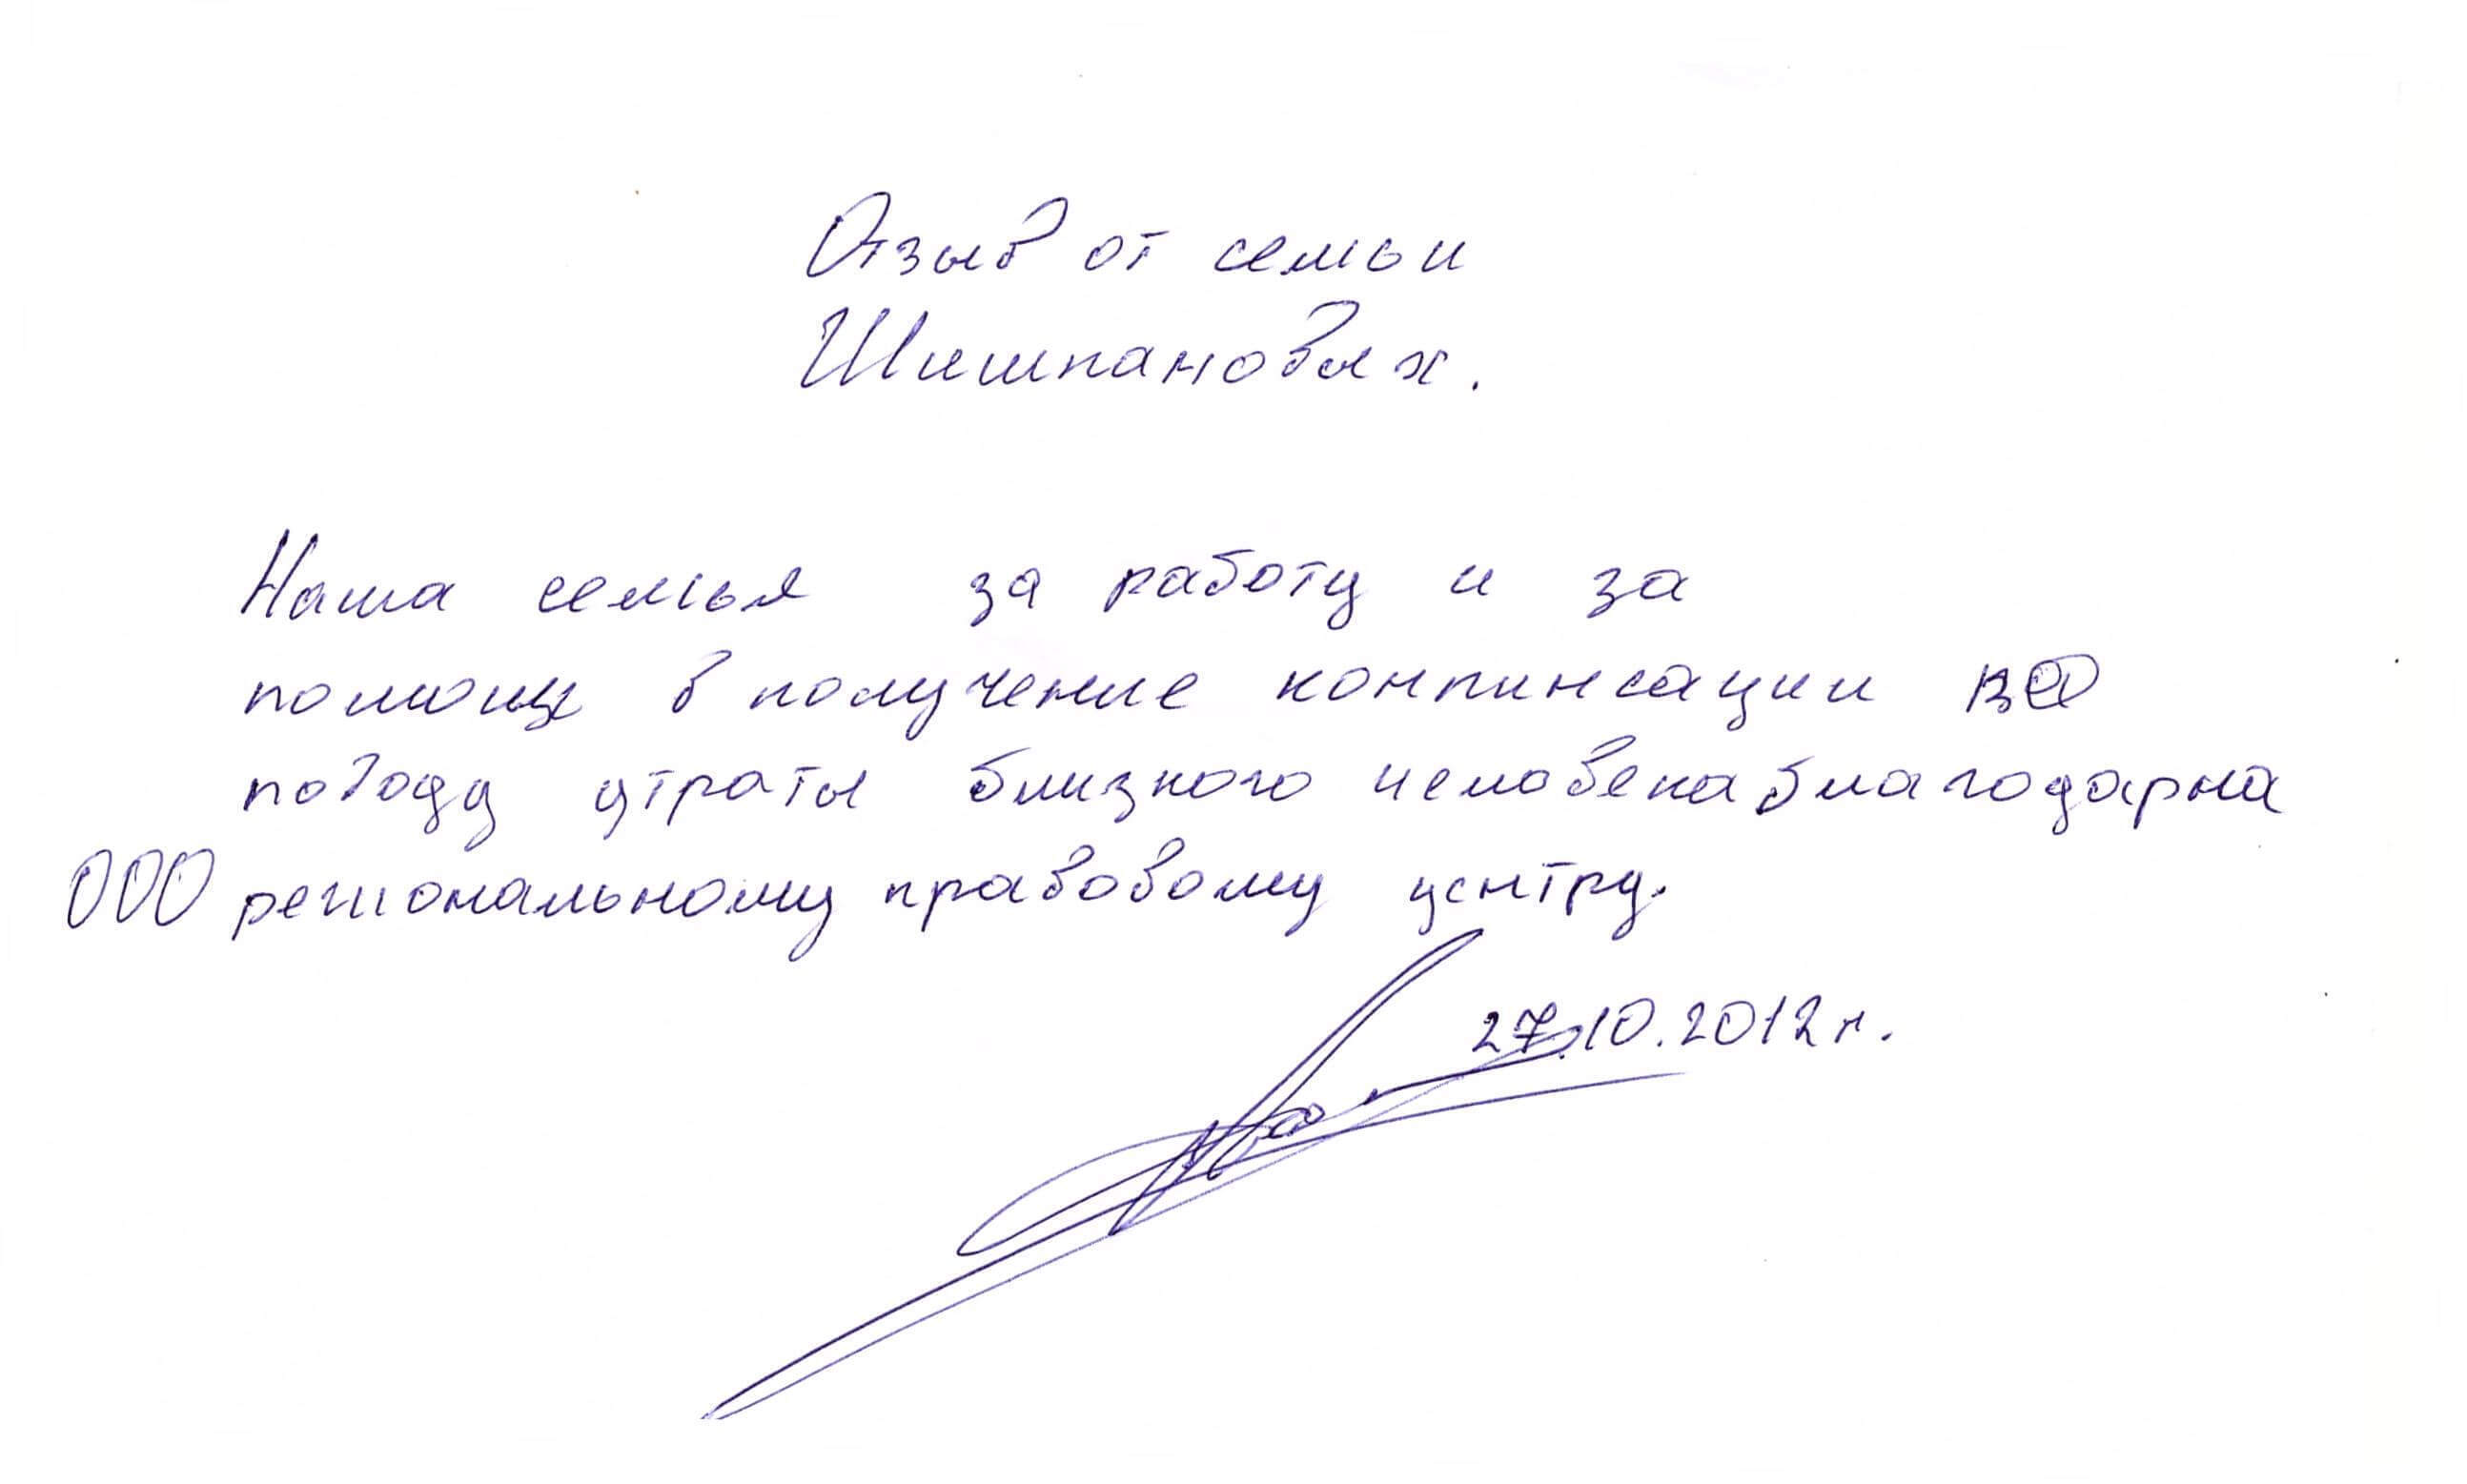 Отзыв от семьи
Шишпановых.
Наша семья за работу и за
помощь в получение компинсации
поводу утраты близкого человека благодарна
ООО региональному правовому центру.
27.10.2012 г.